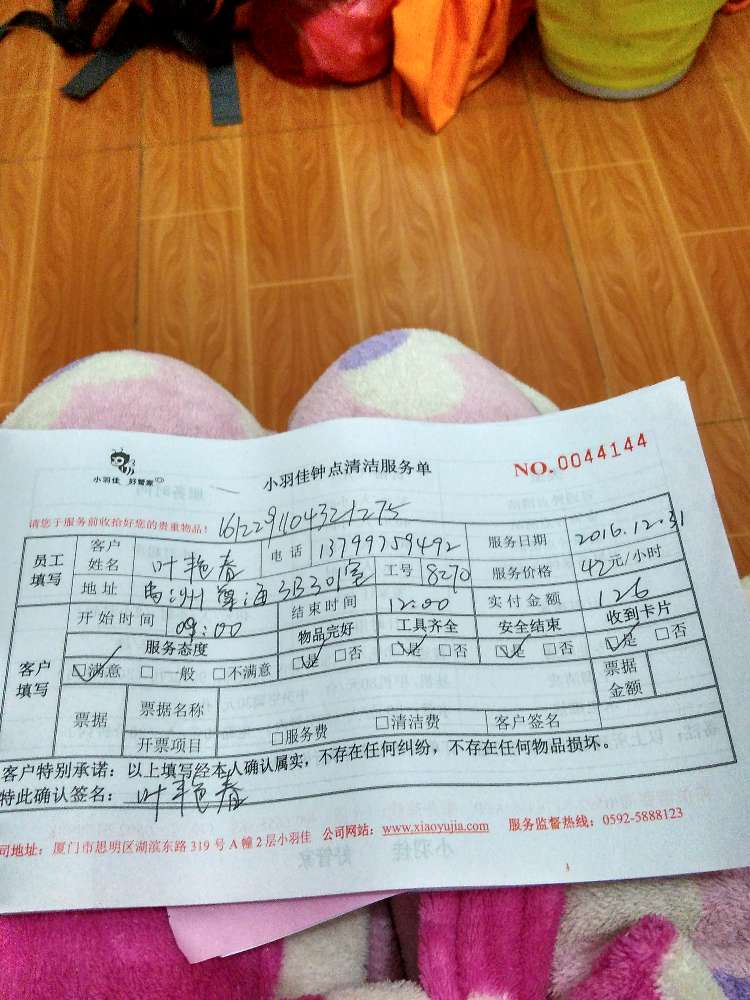 小羽佳 好管家
小羽佳钟点清洁服务单
NO.0044144
请您于服务前收拾好您的贵重物品！
员工填写 客户姓名 叶艳春 电话 13799759492 服务日期 2016.12.31
地址 301室 工号 8270 服务价格 42元/小时
客户填写 开始时间 09:00 结束时间 12:00 实付金额 126
服务态度 物品完好 工具齐全 安全结束 收到卡片
☑满意 □一般 □不满意 ☑是 □否 ☑是 □否 ☑是 □否 ☑是 □否
票据 票据名称 票据金额
开票项目 □服务费 □清洁费 客户签名
客户特别承诺：以上填写经本人确认属实，不存在任何纠纷，不存在任何物品损坏。
特此确认签名：叶艳春
司地址：厦门市思明区湖滨东路319号A幢2层小羽佳 公司网站：www.xiaoyujia.com 服务监督热线：0592-5888123